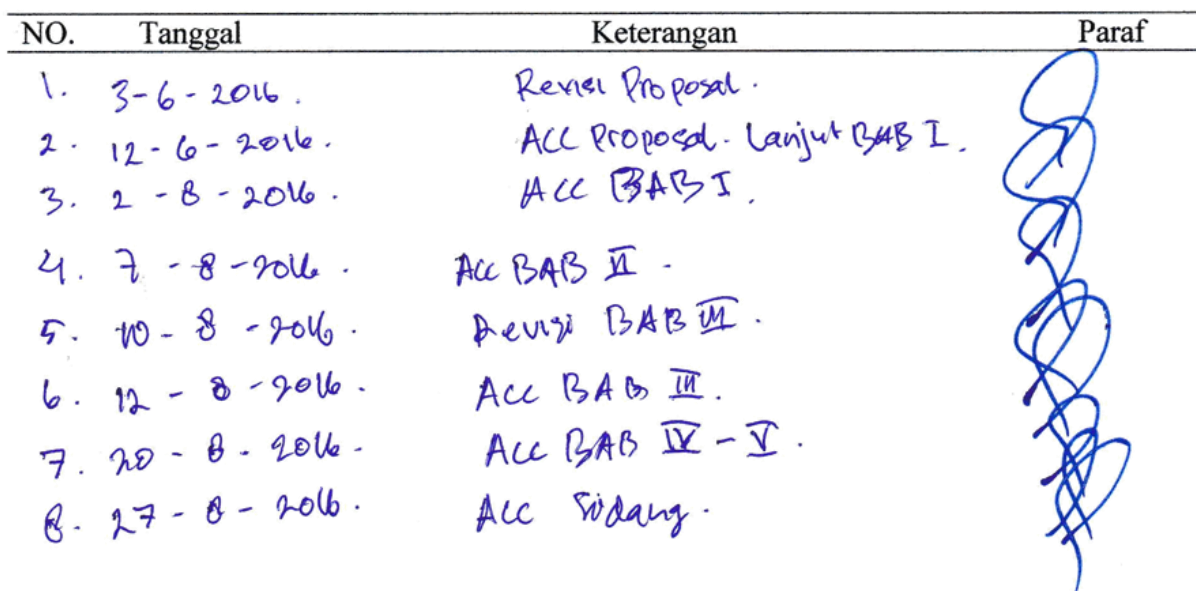 NO. Tanggal Keterangan Paraf
1. 3-6-2016. Revisi Proposal.
2. 12-6-2016. ACC Proposal. Lanjut BAB I.
3. 2-8-2016. ACC BAB I.
4. 7-8-2016. Acc BAB II.
5. 10-8-2016. Revisi BAB III.
6. 12-8-2016. Acc BAB III.
7. 20-8-2016. Acc BAB IV-V.
8. 27-8-2016. Acc Sidang.